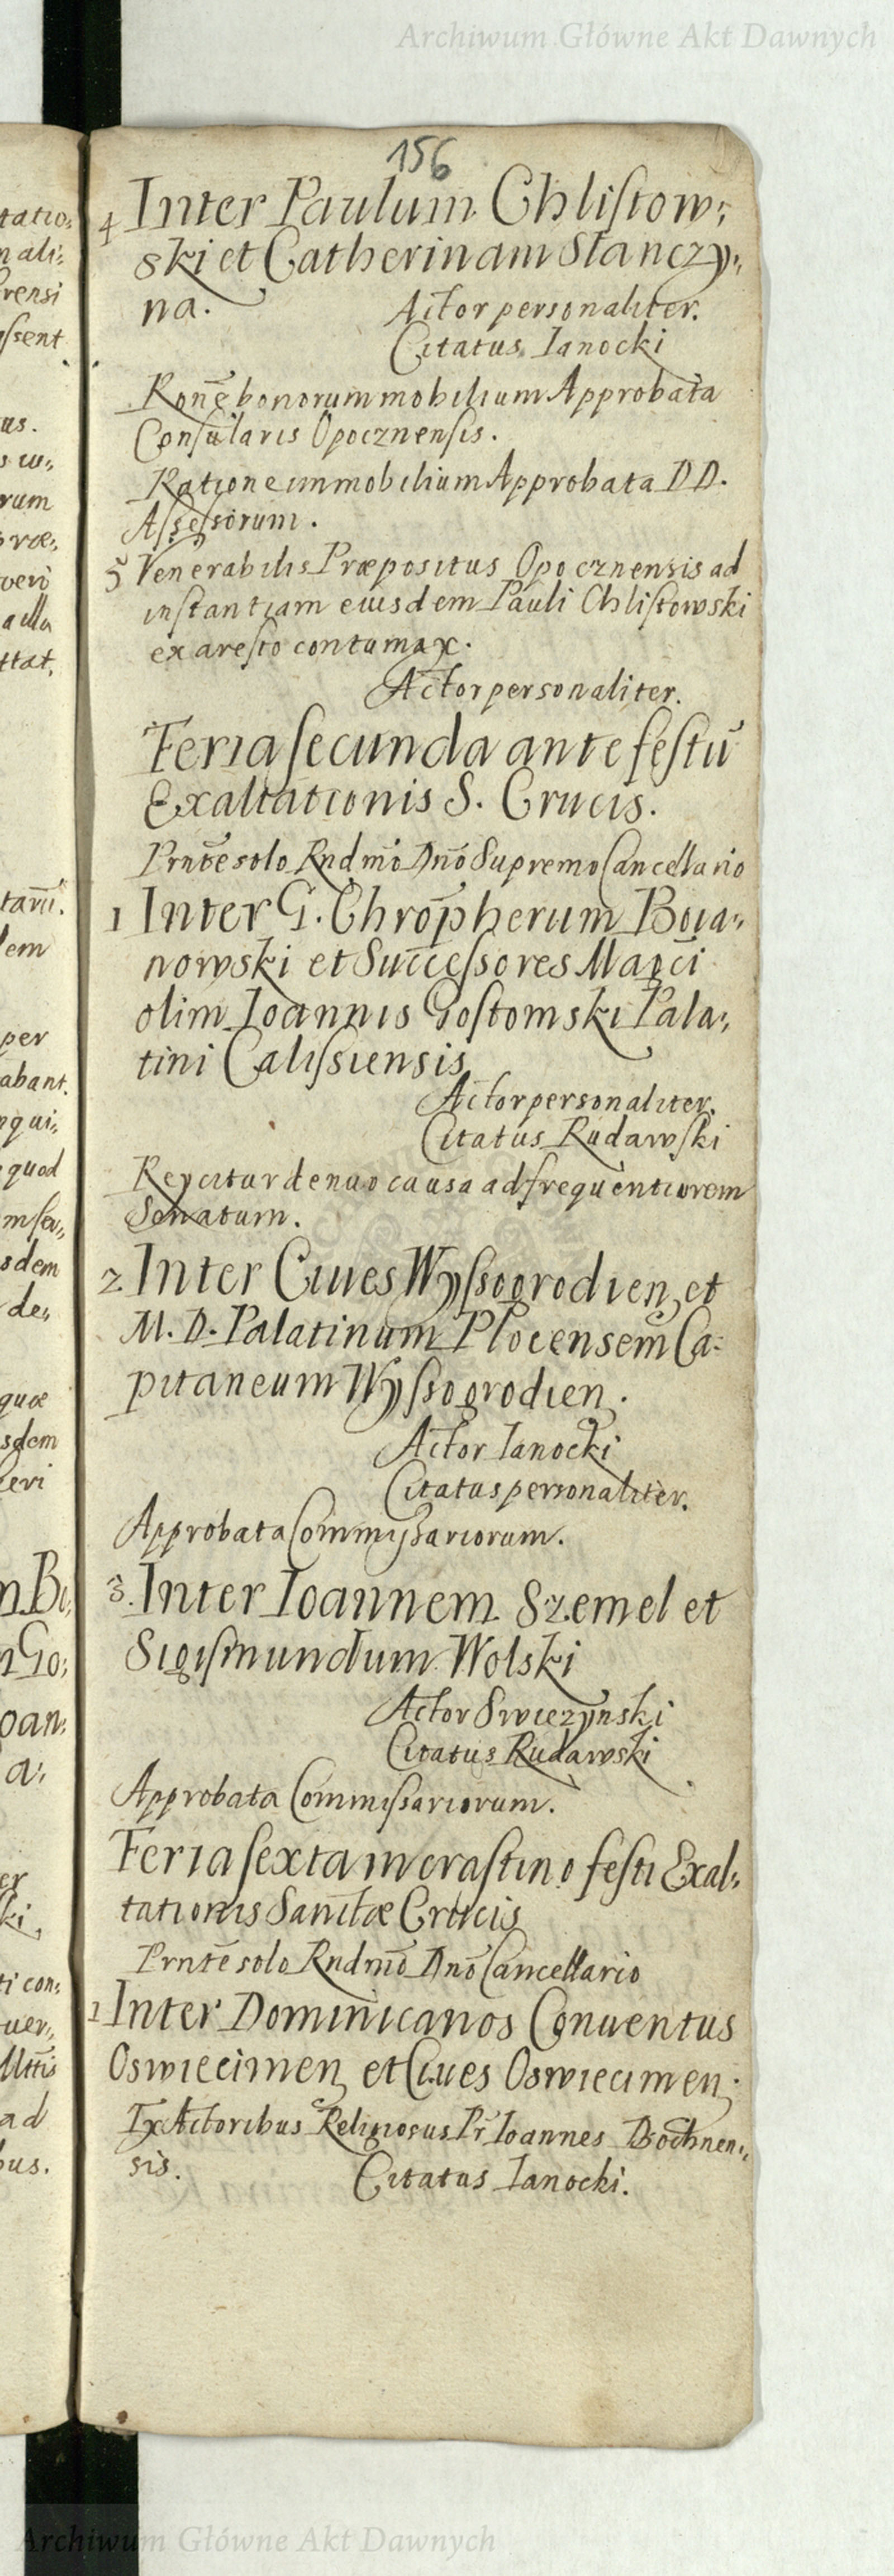 Archiwum Główne Akt Dawnych
156
4 Inter Paulum Chliſtow:
ski et Catherinam Stanczy:
na.
Actor personaliter.
Citatus Ianocki
Ronē bonorum mobilium Approbata
Conſularis Opocznensis.
Ratione immobilium Approbata DD.
Aſseſsorum.
5 Venerabilis Præpositus Opocznensis ad
inſtantiam eiusdem Pauli Chliſtowski
ex areſto contumax.
Actor personaliter.
Feria ſecunda ante feſtū
Exaltationis S. Crucis.
Prntē solo Rndmō Dnō Supremo Cancellario
1 Inter G. Chrōpherum Boia:
nowski et Succeſsores Magci
olim Ioannis Goſtomski Pala:
tini Caliſsiensis
Actor personaliter.
Citatus Rudawſki
Reycitur denuo causa ad frequentiorem
Senatum.
2 Inter Ciues Wyſsogrodien et
M. D. Palatinum Plocensem Ca:
pitaneum Wyſsogrodien.
Actor Ianocki
Citatus personaliter.
Approbata Commiſsariorum.
3. Inter Ioannem Szemel et
Sigiſmundum Wolski
Actor Swiezynski
Citatus Rudawski
Approbata Commiſsariorum.
Feria ſexta in craſtino feſti Exal:
tationis Sanctæ Crucis
Prntē solo Rndmō Dnō Cancellario
1 Inter Dominicanos Conuentus
Oswiecimen et Ciues Oswiecimen.
Ex Actoribus Religiosus Pr Ioannes Bochnen:
sis.
Citatus Ianocki.
Archiwum Główne Akt Dawnych